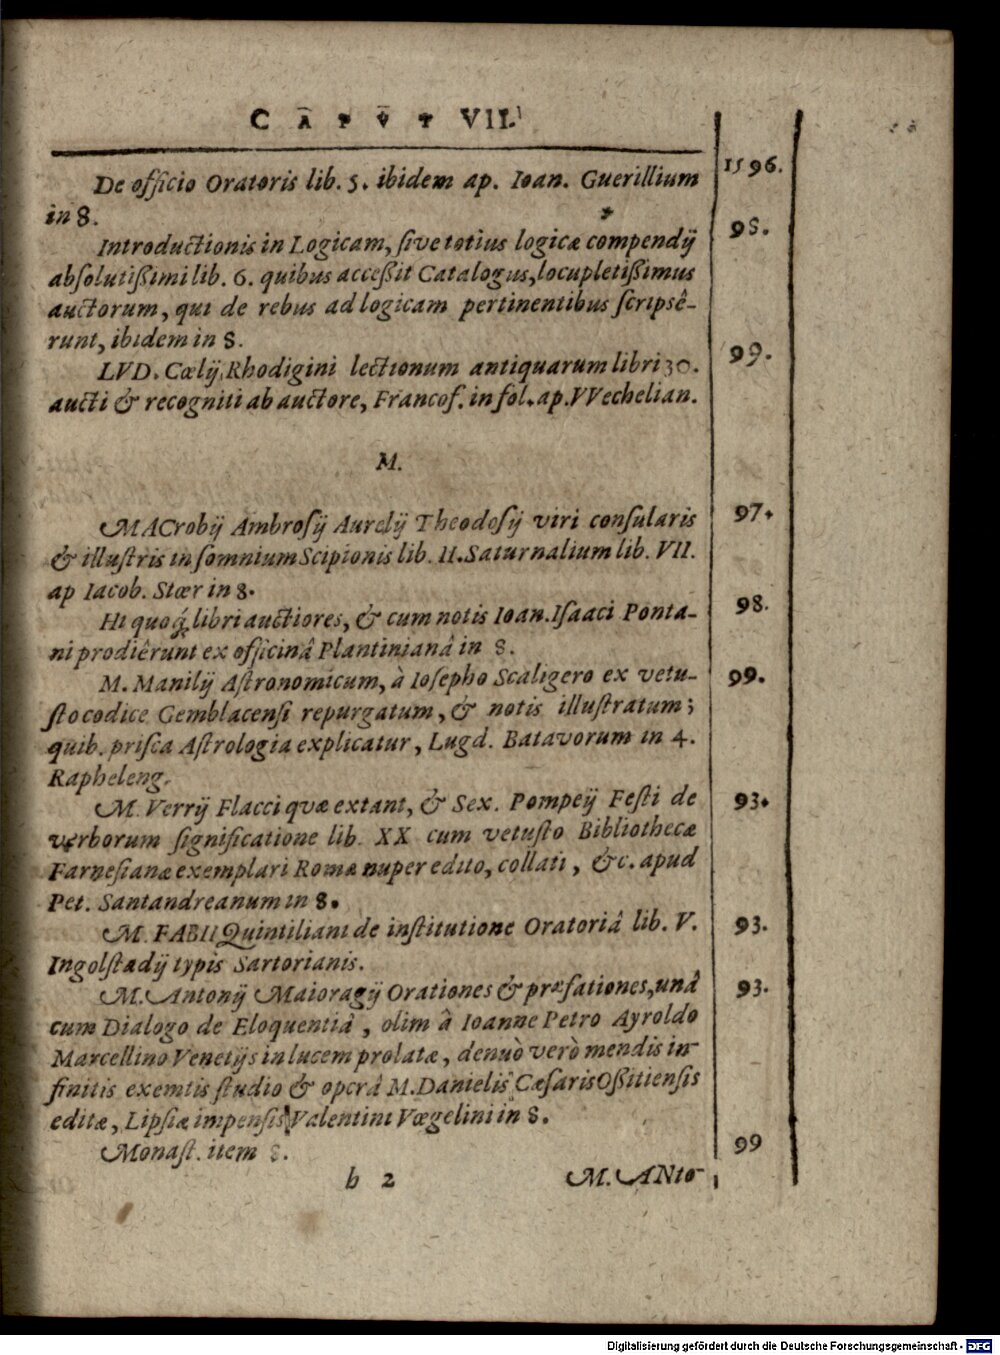 CAPVT VII.
De officio Oratoris lib. 5. ibidem ap. Ioan. Guerillium 1596.
in 8.
Introductionis in Logicam, ſive totius logicæ compendij 98.
abſolutißimi lib. 6. quibus acceßit Catalogus, locupletißimus
auctorum, qui de rebus ad logicam pertinentibus ſcripsê-
runt, ibidem in 8.
LVD. Cœlij Rhodigini lectionum antiquarum libri 30. 99.
aucti & recogniti ab auctore, Francof. in fol. ap. VVechelian.
M.
MACrobij Ambroſij Aurelij Theodoſij viri conſularis 97.
& illuſtris in ſomnium Scipionis lib. II. Saturnalium lib. VII.
ap Iacob. Stœr in 8.
Hi quoq́; libri auctiores, & cum notis Ioan. Iſaaci Ponta- 98.
ni prodiêrunt ex officinâ Plantinianâ in 8.
M. Manilij Aſtronomicum, à Ioſepho Scaligero ex vetu- 99.
ſto codice Gemblacenſi repurgatum, & notis illuſtratum;
quib. priſca Aſtrologia explicatur, Lugd. Batavorum in 4.
Rapheleng.
M. Verrij Flacci quæ extant, & Sex. Pompeij Feſti de 93.
verborum ſignificatione lib. XX cum vetuſto Bibliothecæ
Farneſianæ exemplari Romæ nuper edito, collati, &c. apud
Pet. Santandreanum in 8.
M. FABII Quintiliani de inſtitutione Oratoriâ lib. V. 93.
Ingolſtadij typis Sartorianis.
M. Antonij Maioragij Orationes & præfationes, unâ 93.
cum Dialogo de Eloquentiâ, olim à Ioanne Petro Ayroldo
Marcellino Venetijs in lucem prolatæ, denuò verò mendis in-
finitis exemtis ſtudio & operâ M. Danielis Cæſaris Oßitienſis
editæ, Lipſiæ impenſis Valentini Vœgelini in 8.
Monaſt. item 8. 99
b 2 M. ANto-
Digitalisierung gefördert durch die Deutsche Forschungsgemeinschaft - DFG